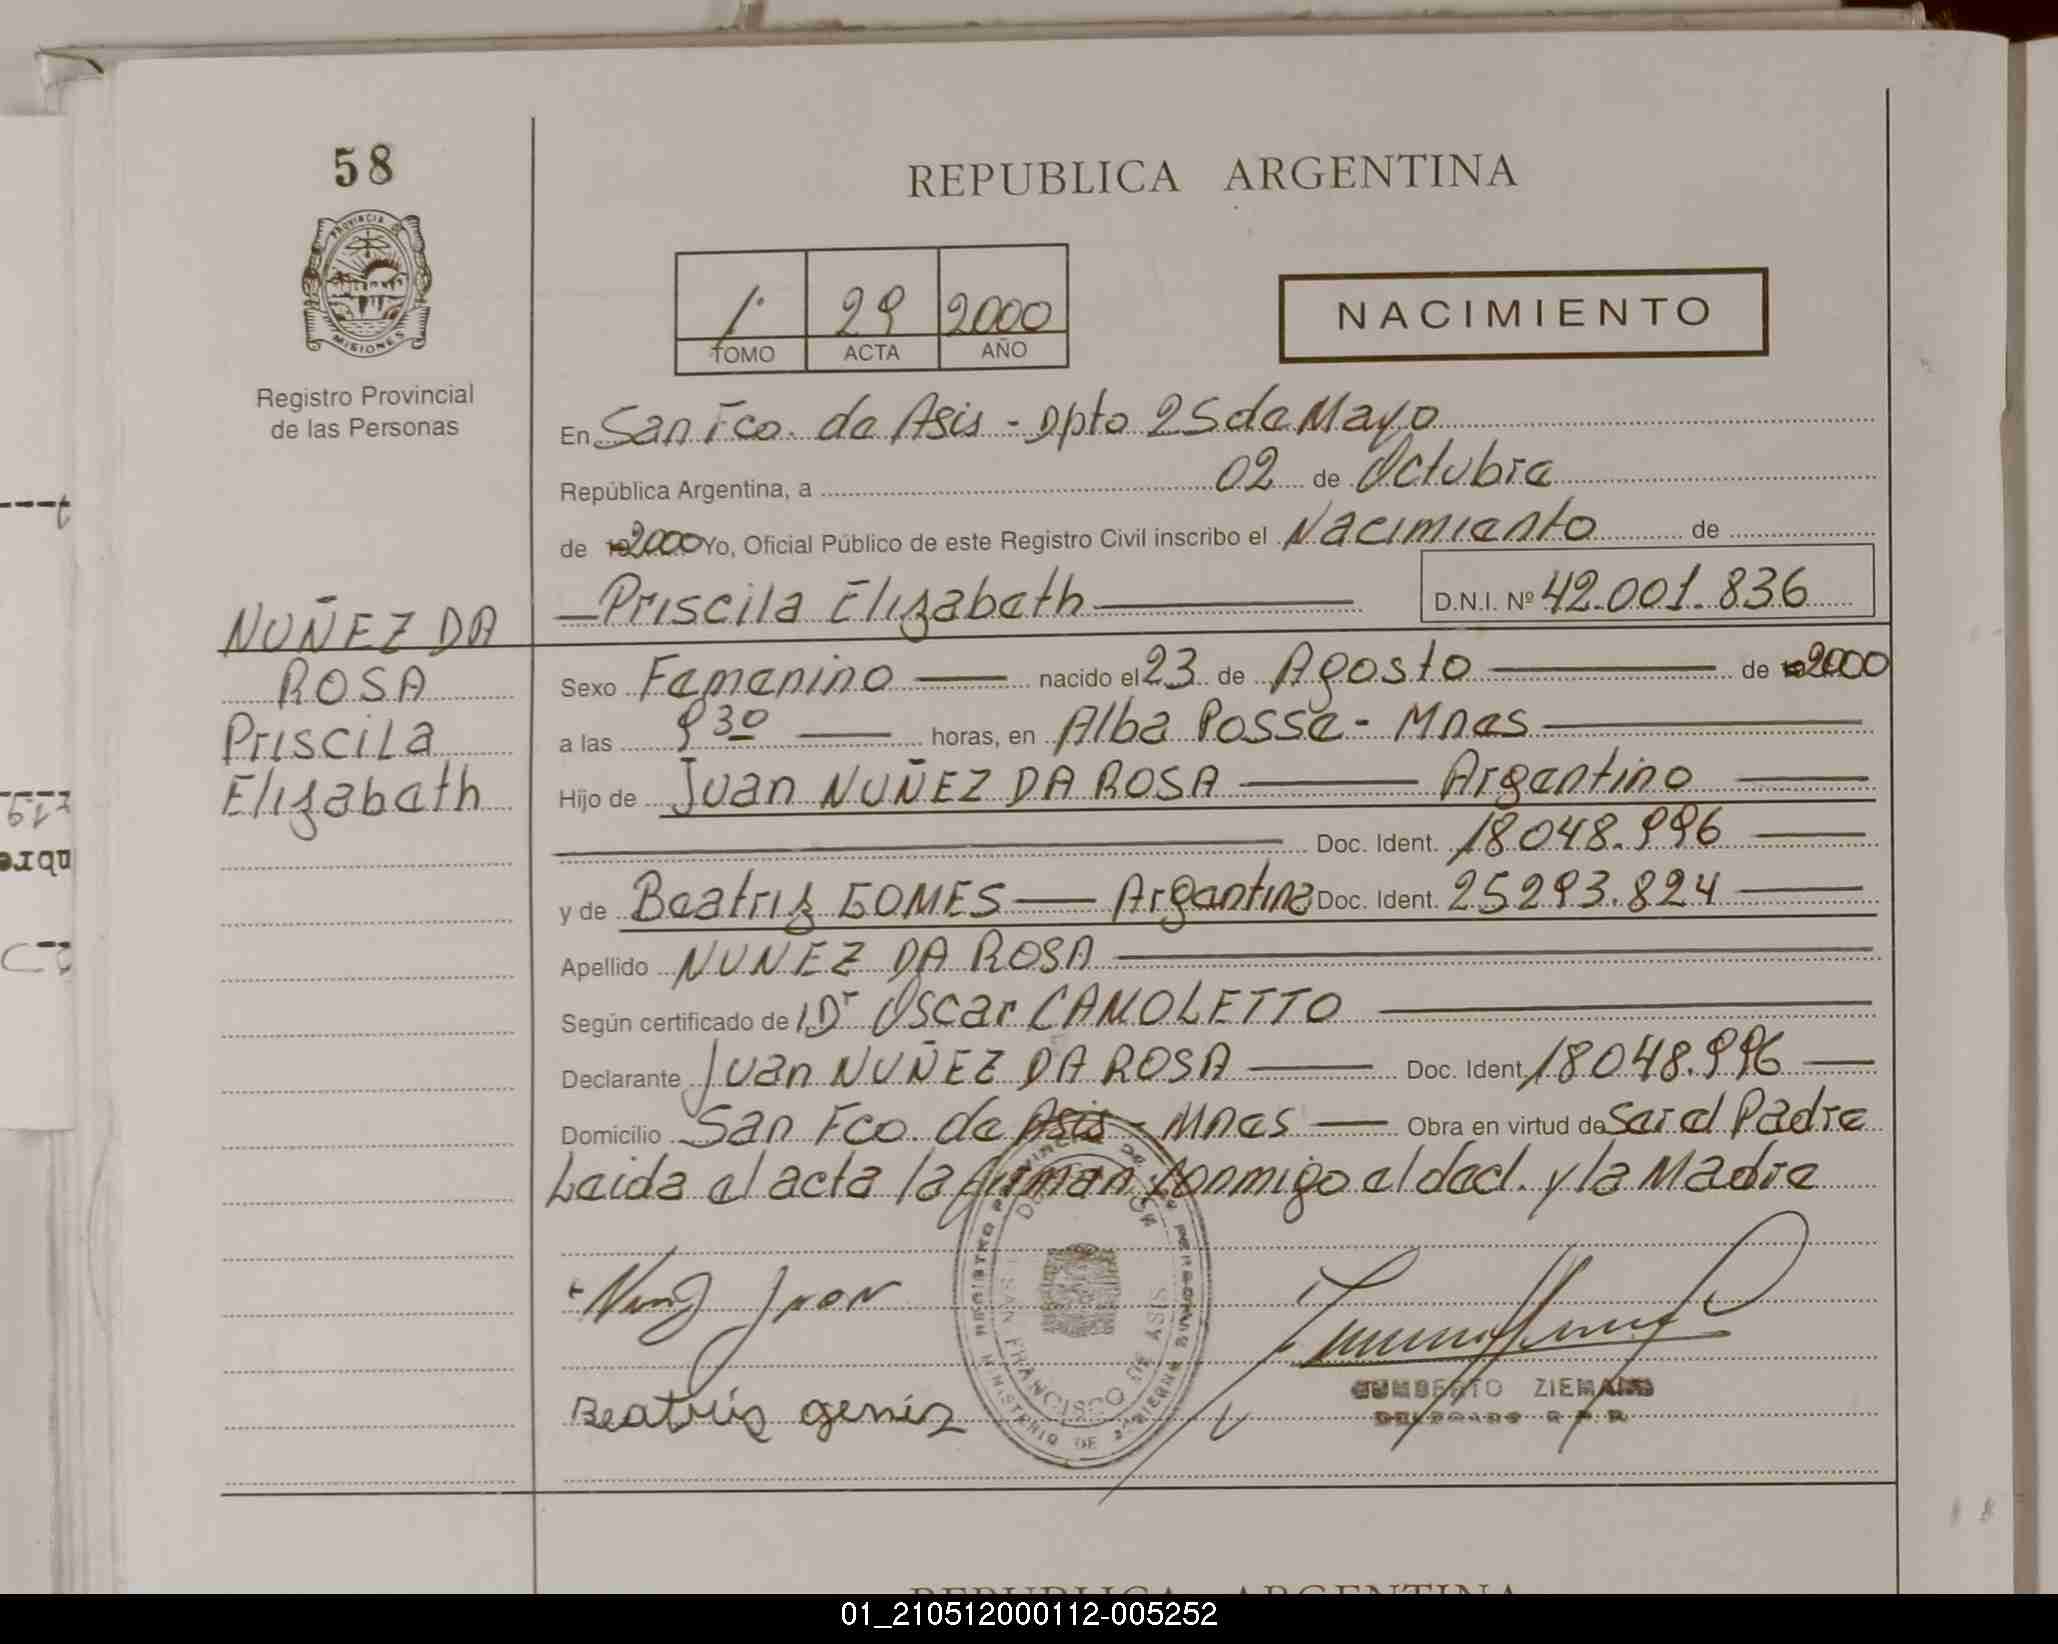 58
PROVINCIA
MISIONES
Registro Provincial
de las Personas
NUÑEZ DA
ROSA
Priscila
Elizabeth
REPUBLICA ARGENTINA
1 29 2000
TOMO ACTA AÑO
NACIMIENTO
En San Fco. de Asis - Dpto 25 de Mayo
República Argentina, a 02 de Octubre
de 2000 Yo, Oficial Público de este Registro Civil inscribo el Nacimiento de
Priscila Elizabeth D.N.I. Nº 42.001.836
Sexo Femenino nacido el 23 de Agosto de 2000
a las 9 30 horas, en Alba Posse - Mnes
Hijo de Juan NUÑEZ DA ROSA Argentino
Doc. Ident. 18048.996
y de Beatriz GOMES Argentina Doc. Ident. 25293.824
Apellido NUNEZ DA ROSA
Según certificado de Dr Oscar CANOLETTO
Declarante Juan NUÑEZ DA ROSA Doc. Ident. 18048.996
Domicilio San Fco. de Asis - Mnes Obra en virtud de Ser el Padre
Leida el acta la firman conmigo el decl. y la Madre
REGISTRO PROVINCIAL DE LAS PERSONAS
SAN FRANCISCO DE ASIS
MINISTERIO DE GOBIERNO
Beatriz
HUMBERTO ZIEMANN
DELEGADO R.P.P.
REPUBLICA ARGENTINA
01_210512000112-005252